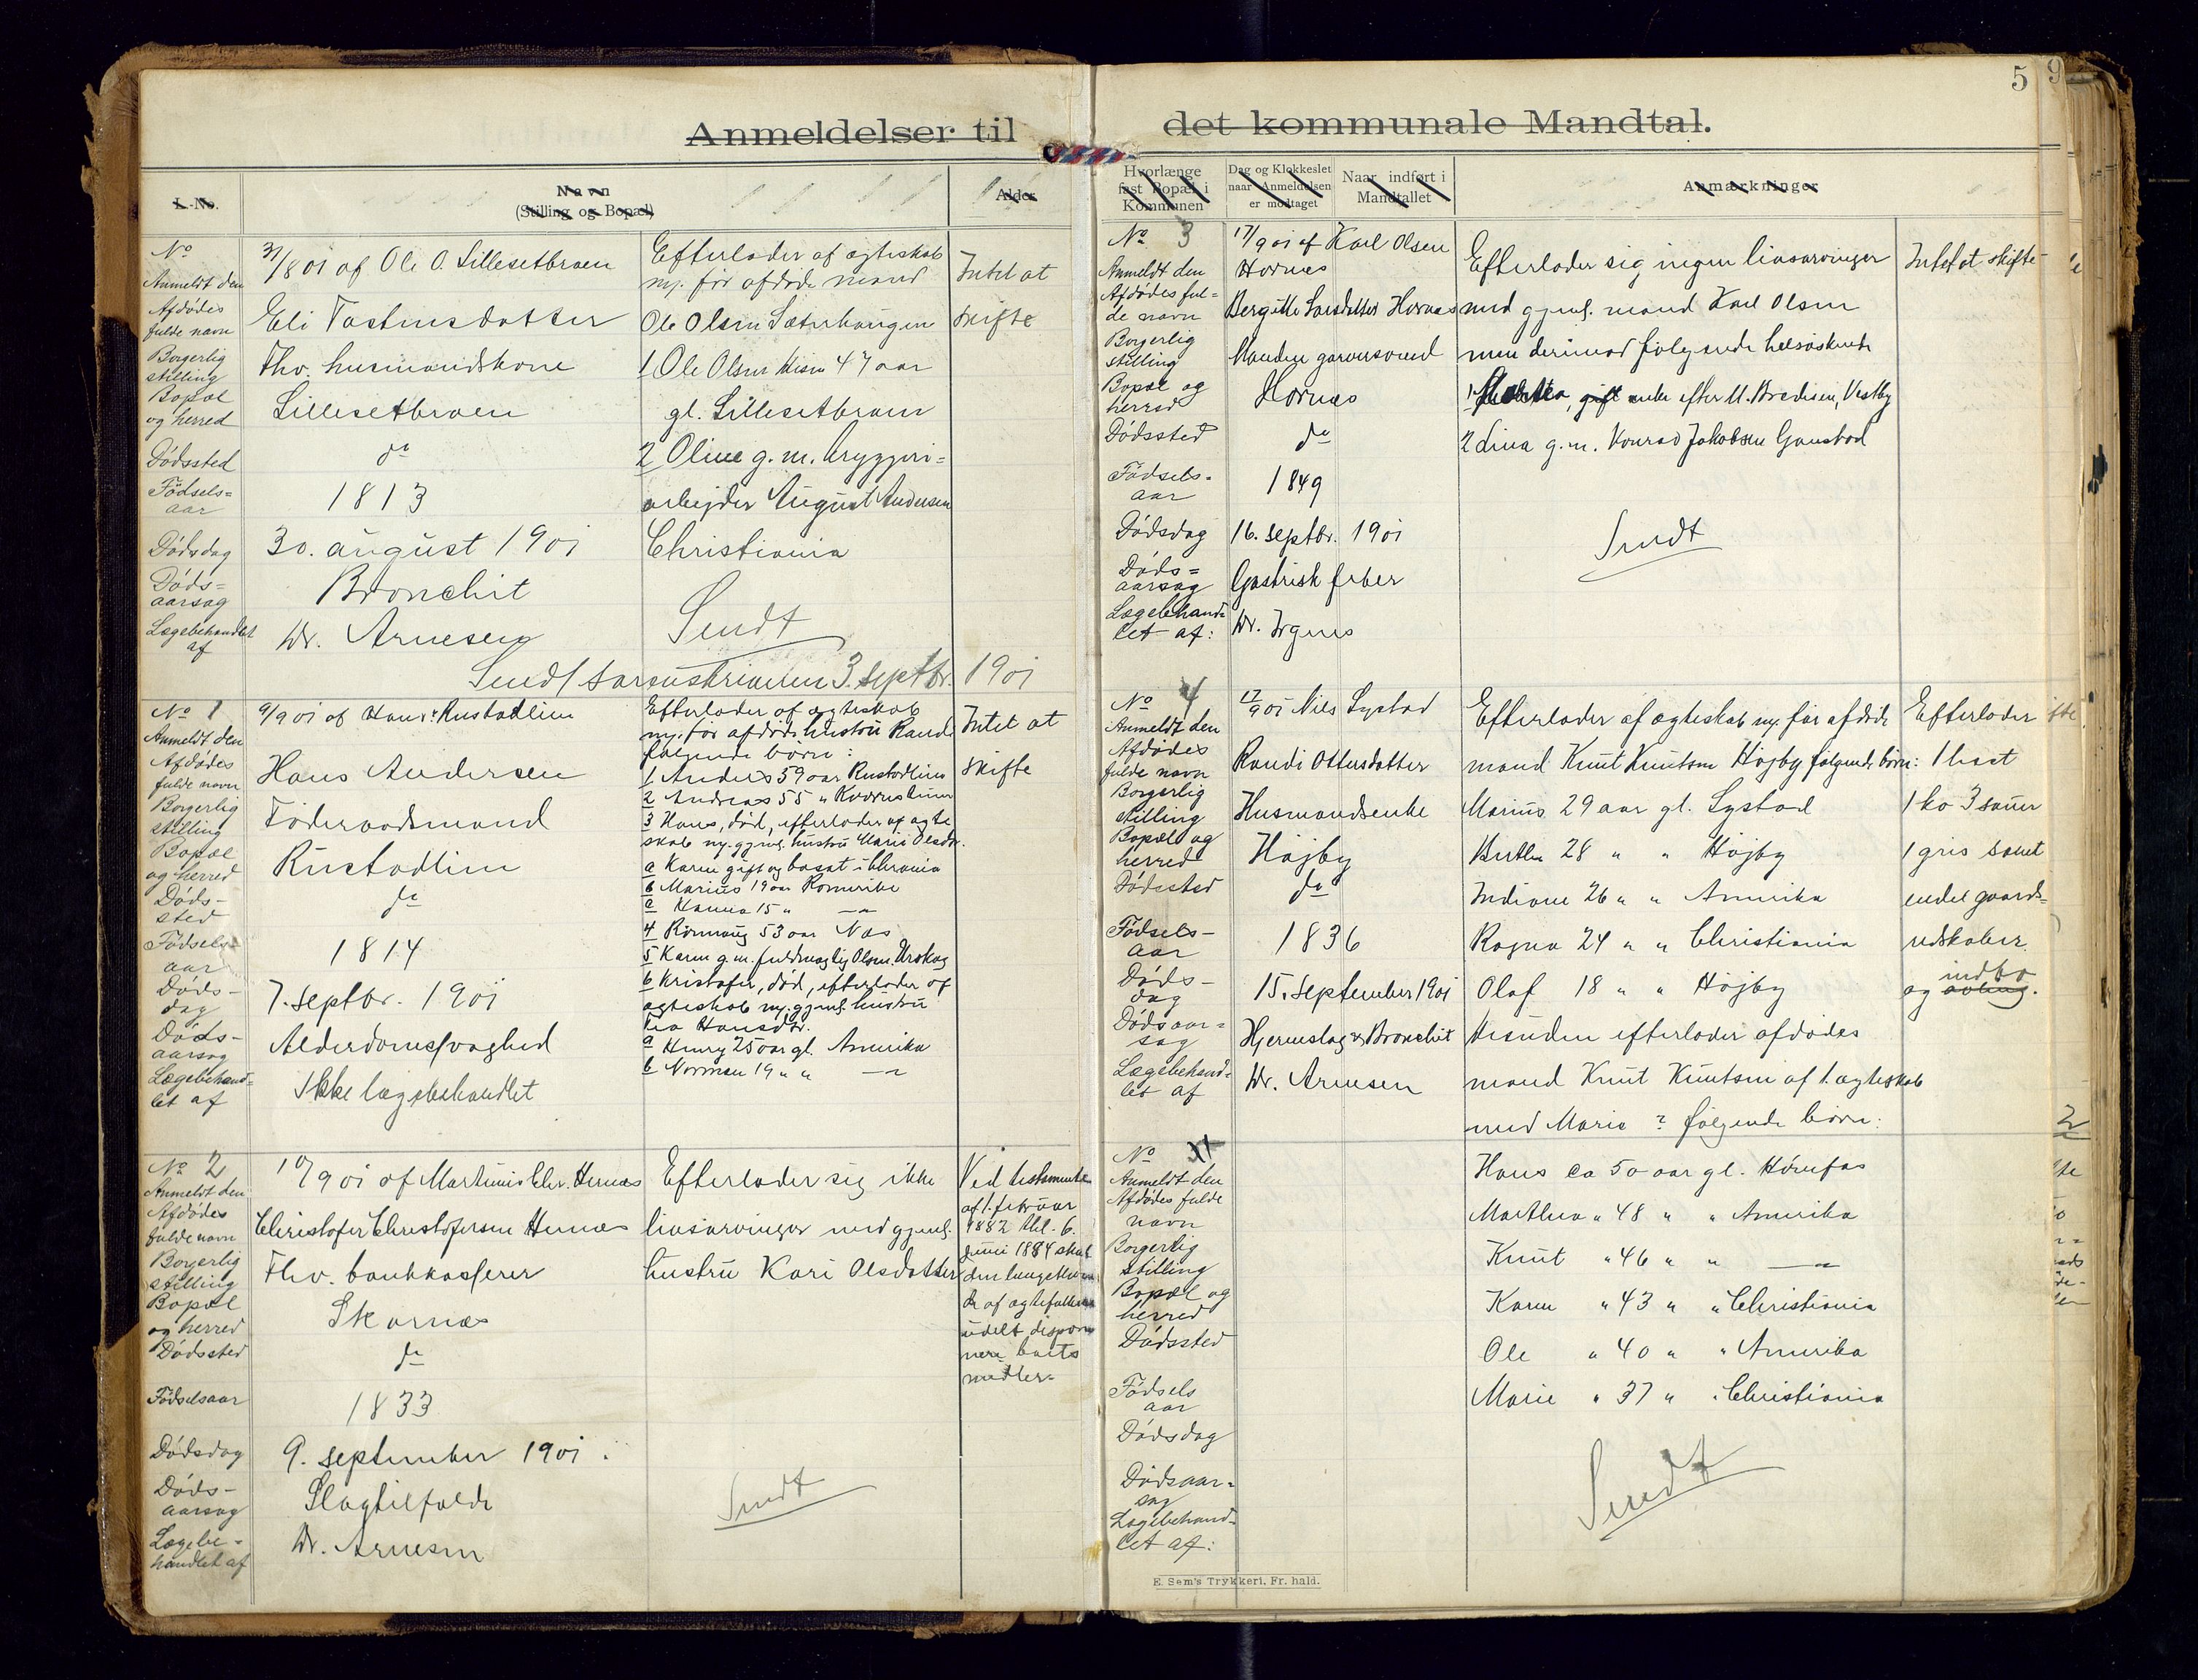 Anmeldelser til det kommunale Mandtal.
5
9
L.-No.
Navn
(Stilling og Bopæl)
Alder
Hvorlænge
fast Bopæl i
Kommunen
Dag og Klokkeslet
naar Anmeldelsen
er modtaget
Naar indført i
Mandtallet
Anmærkninger
No
Anmeldt den
31/8 01 af Ole O. Lillesetbraen
Afdødes
fulde navn
Eli Tostensdatter
Borgerlig
stilling
Fhv. husmandskone
Bopæl
og herred
Lillesetbraen
Dødssted
do
Fødsels=
aar
1813
Dødsdag
30. august 1901
Døds=
aarsag
Bronchit
Lægebehandlet
af
Dr. Arnesen
Efterlader af ægteskab
m. før afdøde mand
Ole Olsen Sæterhaugen
1 Ole Olsen 47 aar
gl. Lillesetbraen
2 Oline g. m. bryggeri=
arbejder August Andersen
Christiania
Sendt
Intet at
skifte
Sendt sorenskriveren 3. septbr. 1901
No 1
Anmeldt den
9/9 01 af Hans Rustadlien
Afdødes
fulde navn
Hans Andersen
Borgerlig
stilling
Føderaadsmand
Bopæl
og herred
Rustadlien
Døds-
sted
do
Fødsels-
aar
1814
Døds-
dag
7. septbr. 1901
Døds-
aarsag
Alderdomssvaghed
Lægebehand=
let af
Ikke lægebehandlet
Efterlader af ægteskab
m. før afdøde hustru Randi
følgende børn:
1 Anders 59 aar Rustadlien
2 Andreas 55 "
3 Hans, død, efterlader af ægte
skab m. gjenl. hustru Marie Olsdtr.
a Karen gift og bosat i Chrania
b Marius 19 aar Romerike
c Hanna 15 " —"—
4 Rønnaug 53 aar Næs
5 Karen g. m. fuldmægtig Olsen, Urskog
6 Kristofer, død, efterlader af
ægteskab m. gjenl. hustru
Lea Hansdtr.
a Henry 25 aar gl. Amerika
b Norman 19 " " —"—
Intet at
skifte
No 2
Anmeldt den
10/9 01 af Martinius Chr. Hernæs
Afdødes
fulde navn
Christofer Christofersen Hernæs
Borgerlig
stilling
Fhv. bankkasserer
Bopæl
og herred
Skarnæs
Dødssted
do
Fødselsaar
1833
Dødsdag
9. september 1901.
Døds-
aarsag
Slagtilfælde
Lægebe-
handlet af
Dr. Arnesen
Efterlader sig ikke
livsarvinger med gjenl.
hustru Kari Olsdatter
Sendt
Ved testamente
af 1. februar
1882 thl. 6.
juni 1884 skal
den længstleven
de af ægtefolkene
udelt dispo
nere boets
midler.
No 3
Anmeldt den
17/9 01 af Karl Olsen
Hornæs
Afdødes ful=
de navn
Bergitte Larsdatter Hornæs
Borgerlig
stilling
Manden gaardmand
Bopæl og
herred
Hornæs
Dødssted
do
Fødsels-
aar
1849
Dødsdag
16. septbr. 1901
Døds=
aarsag
Gastrisk feber
Lægebehand=
let af:
Dr. Irgens
Efterlader sig ingen livsarvinger
med gjenl. mand Karl Olsen
men derimod følgende helsøskende
1 gift enke efter M. Bredesen, Vestby
2 Lina g. m. Konrad Jakobsen Ganstad
Sendt
Intet at skifte
No 4
Anmeldt den
17/9 01 Niels Systad
Afdødes
fulde navn
Randi Ottersdatter
Borgerlig
stilling
Husmandsenke
Bopæl og
herred
Højby
Dødssted
do
Fødsels-
aar
1836
Døds-
dag
15. september 1901
Dødsaar=
sag
Hjerneslag & Bronchit
Lægebehand=
let af
Dr. Arnesen
Efterlader af ægteskab m. før afdøde
mand Knut Knutsen Højby følgende børn:
Marius 29 aar gl. Systad
28 " " Højby
Indiane 26 " " Amerika
Ragna 24 " " Christiania
Olaf 18 " " Højby
Desuden efterlader afdødes
mand Knut Knutsen af 1. ægteskab
med Marie ? følgende børn:
Hans ca 50 aar gl. Hønefos
Marthea " 48 " " Amerika
Knut " 46 " " —"—
Karen " 43 " " Christiania
Ole " 40 " " Amerika
Marie " 37 " " Christiania
Sendt
Efterlader
1 hest
1 ko 3 sauer
1 gris samt
endel gaards=
redskaber
og indbo avling.
No
Anmeldt den
Afdødes fulde
navn
Borgerlig
stilling
Bopæl og
herred
Dødssted
Fødsels
aar
Dødsdag
Dødsaar=
sag
Lægebehand=
let af:
E. Sem's Trykkeri, Fr. hald.